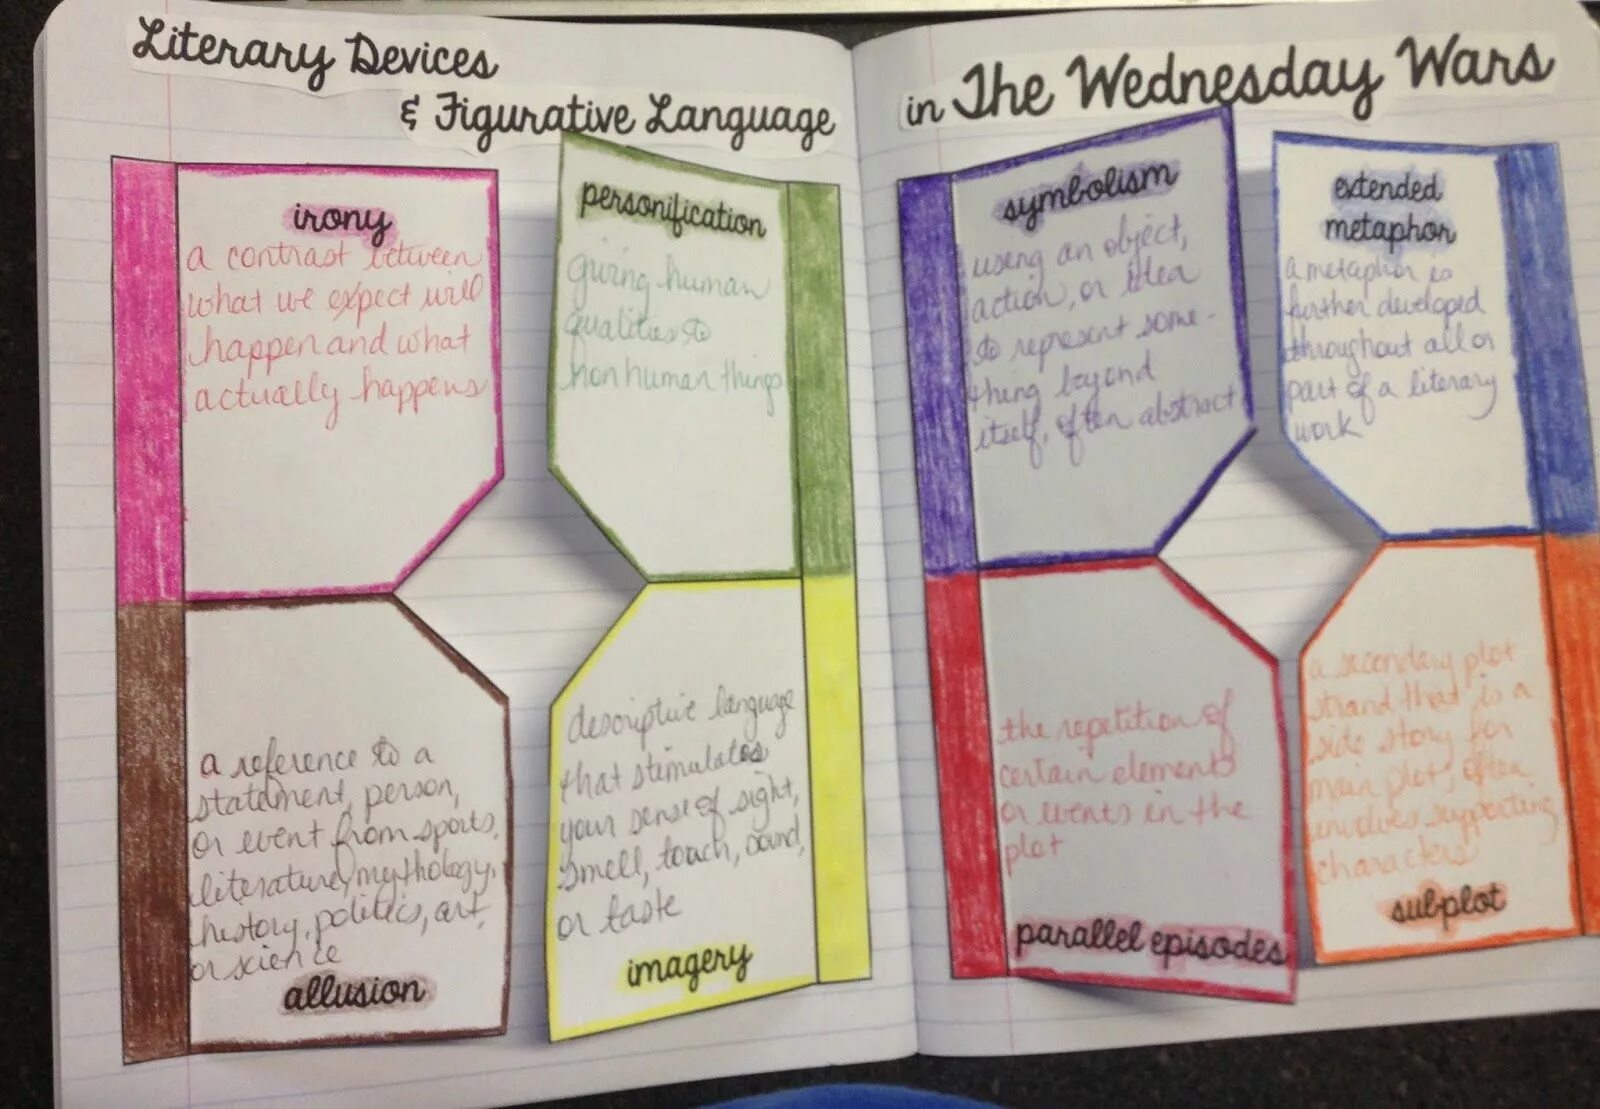 Literary Devices
& Figurative Language
in The Wednesday Wars
irony
a contrast between
what we expect will
happen and what
actually happens
personification
giving human
qualities to
nonhuman things
a reference to a
statement, person,
or event from sports,
literature, mythology,
history, politics, art,
or science
allusion
descriptive language
that stimulates
your sense of sight,
smell, touch, sound,
or taste
imagery
symbolism
using an object,
action, or idea
to represent some-
thing beyond
itself, often abstract
extended
metaphor
a metaphor is
further developed
throughout all or
part of a literary
work
the repetition of
certain elements
or events in the
plot
parallel episodes
a secondary plot
strand that is a
side story for
main plot, often
involves supporting
characters
subplot